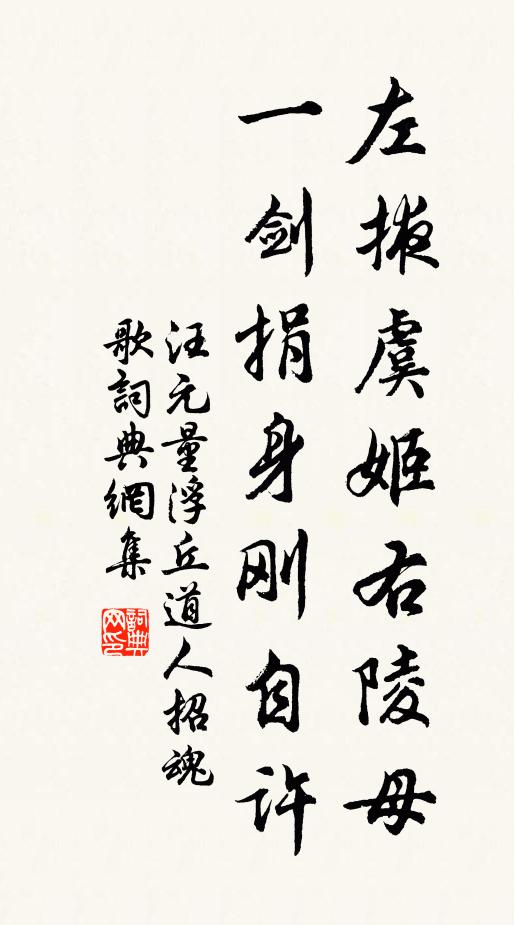 左掖虞姬右陵母
一剑捐身刚自许
汪元量浮丘道人招魂
歌詞典網集
詞典
网印